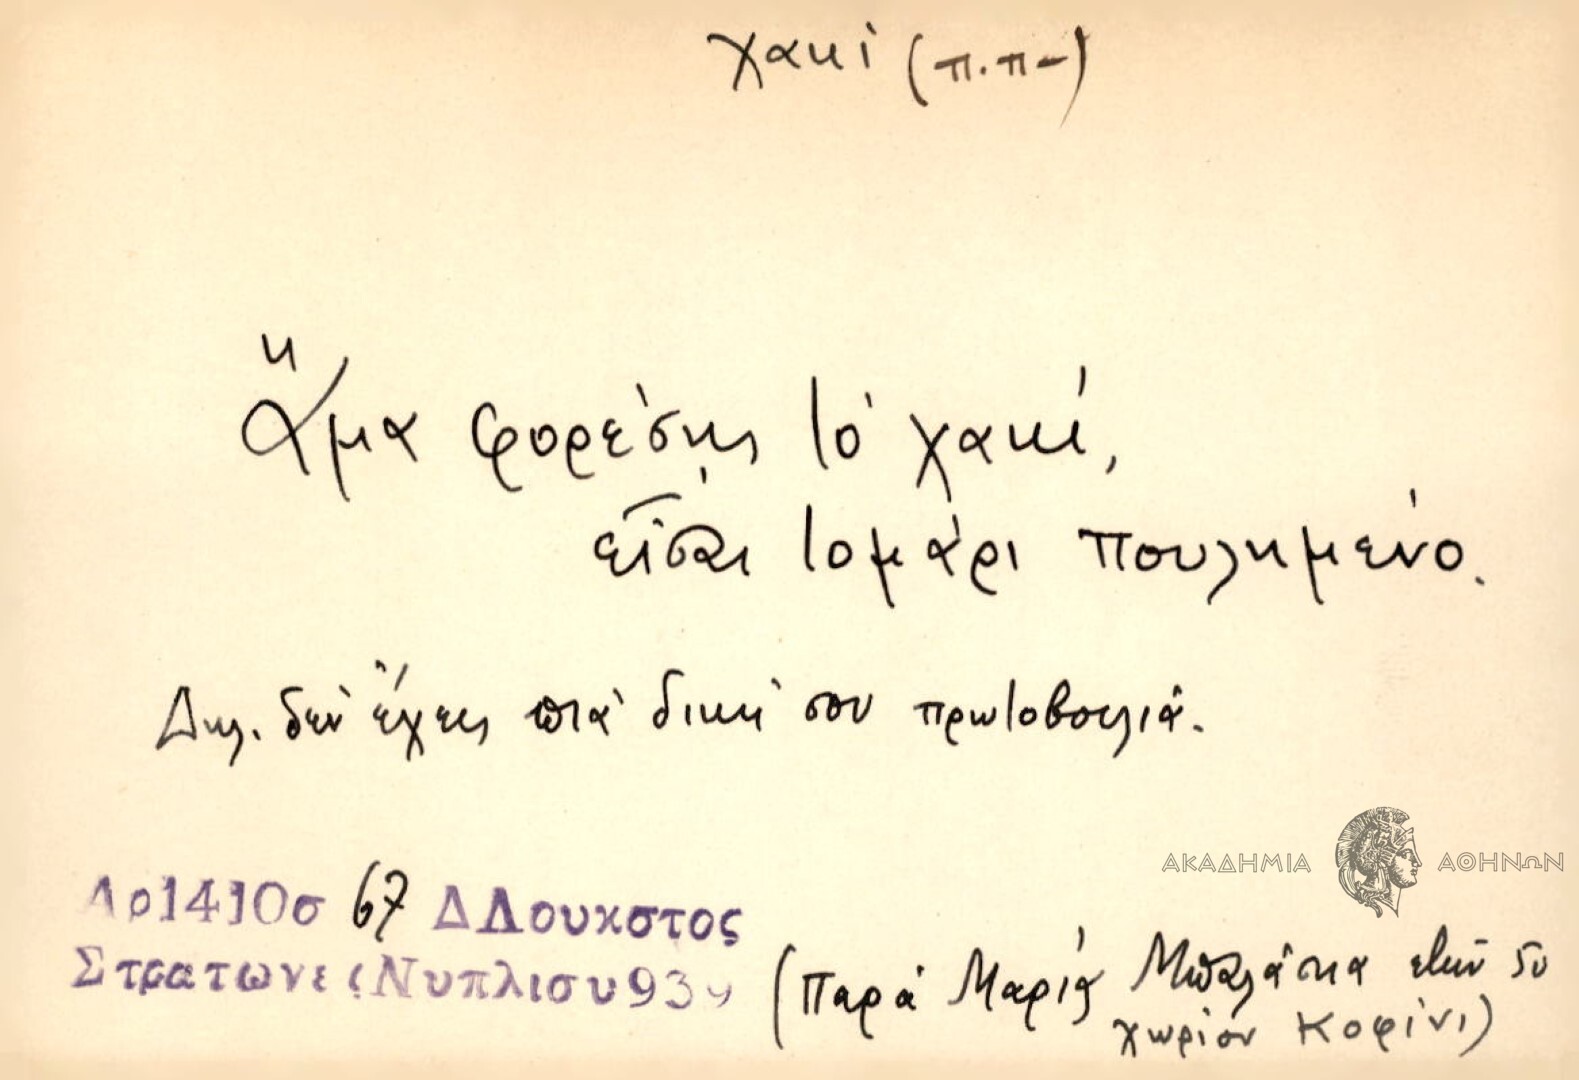 χακί (π.π-)
Ἅμα φορέσῃς τὸ χακί,
εἶσαι τομάρι πουλημένο.
Δηλ. δὲν ἔχεις πιὰ δική σου πρωτοβουλιά.
Αρ1410σ 67 ΔΔουκστος
Στρατωνε Νυπλισυ939
(Παρὰ Μαρίας Μπαλάσκα ἐτῶν 50
χωρίον Κοφίνι)
ΑΚΑΔΗΜΙΑ ΑΘΗΝΩΝ